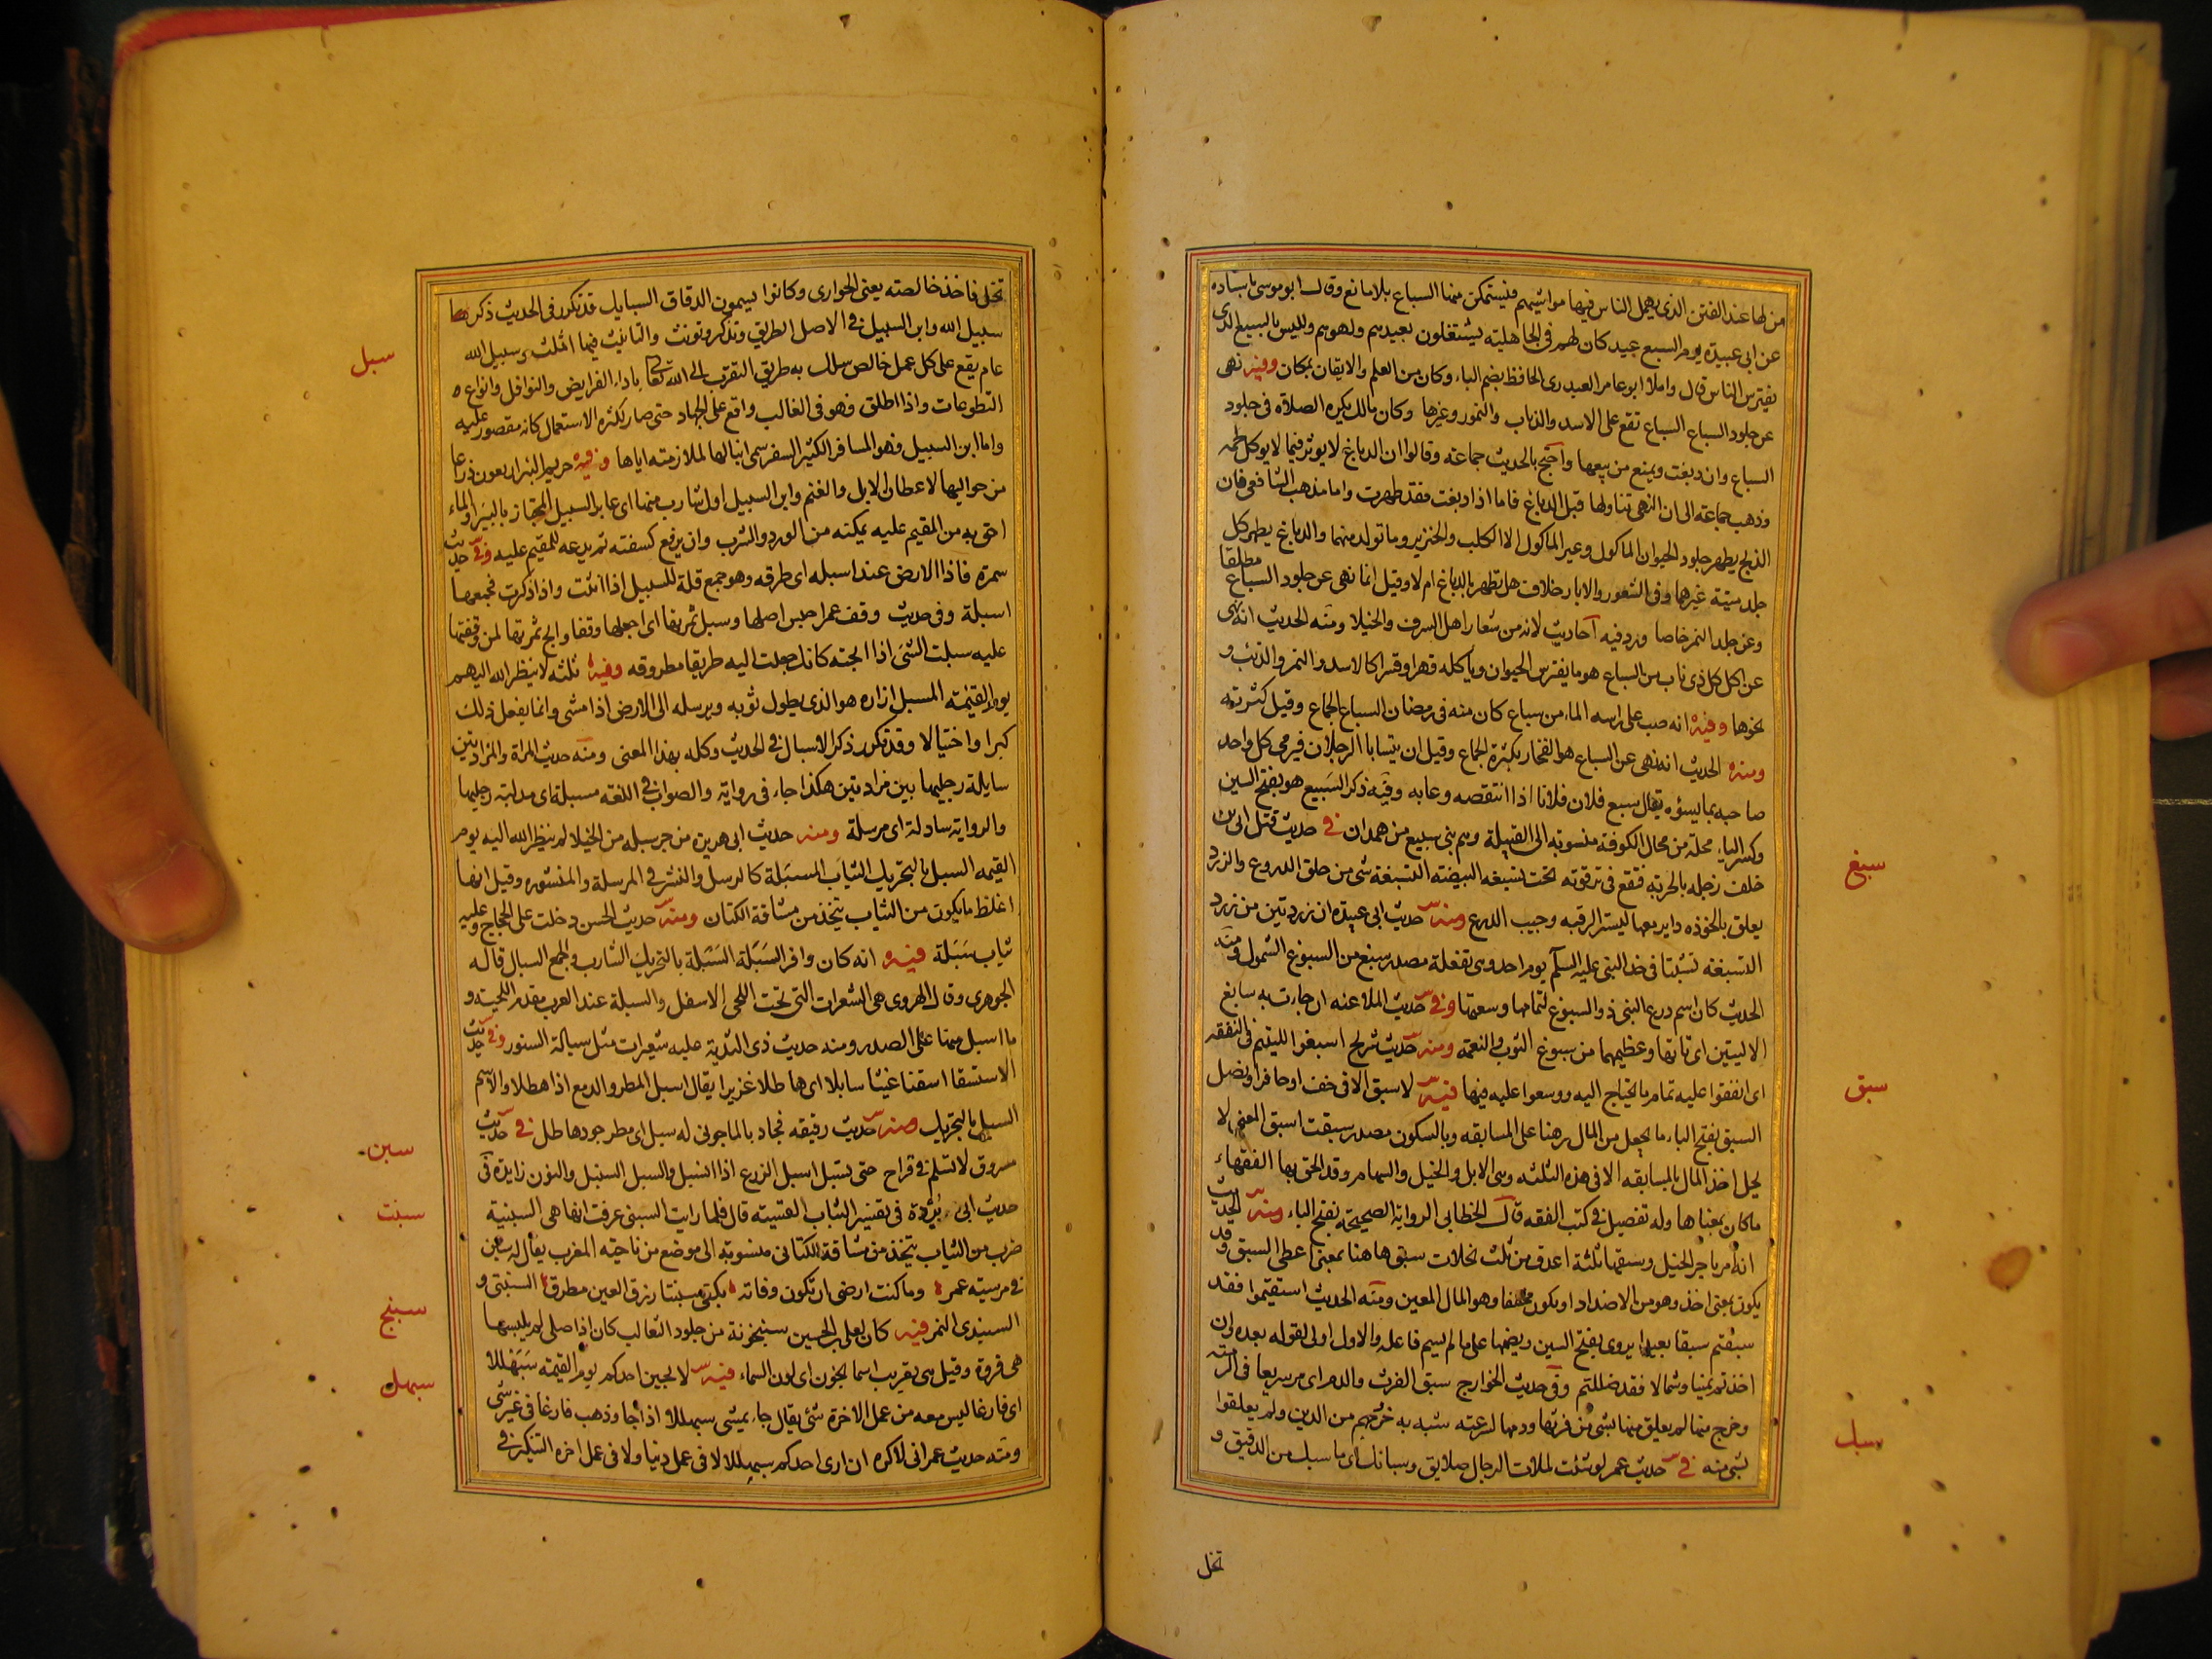 من لها عند الفتن الذى يهمل الناس فيها مواشيهم فتستمكن منها السباع بلا مانع وقال ابو موسى باسناده
عن ابى عبيدة يوم السبع عيد كان لهم فى الجاهلية يشتغلون بعيدهم ولهوهم وليس بالسبع الذى
يفترس الناس قال واملا ابو عامر العبدرى الحافظ بضم الباء وكان من العلم والايقان بمكان وفيه نهى
عن جلود السباع السباع تقع على الاسد والذياب والنمور وغيرها وكان مالك يكره الصلاة فى جلود
السباع وان دبغت ويمنع من بيعها واحتج بالحديث جماعته وقالوا ان الدباغ لا يوثر فيما لا يوكل لحمه
وذهب جماعته الى ان النهى تناولها قبل الدباغ فاما اذا دبغت فقد طهرت واما مذهب الشافعى فان
الذبح يطهر جلود الحيوان الماكول وغير الماكول الا الكلب والخنزير وما تولد منهما والدباغ يطهر كل
جلد ميتة غيرهما وفى الشعور والاوبار خلاف هل تطهر بالدباغ ام لا وقيل انما نهى عن جلود السباع مطلقا
وعن جلد النمر خاصا ورد فيه احاديث لانه من شعار اهل السرف والخيلا ومنه الحديث انه نهى
عن اكل كل ذى ناب من السباع هو ما يفترس الحيوان وياكله قهرا وقسرا كالاسد والنمر والذئب و
نحوها وفيه انه صب على راسه الماء من سباع كان منه فى رمضان السباع الجماع وقيل كثرته
ومنه الحديث انه نهى عن السباع هو الفخار بكثرة الجماع وقيل ان يتسابا الرجلان فيرمى كل واحد
صاحبه بما يسؤه يقال سبع فلان فلانا اذا انتقصه وعابه وفيه ذكر السبيع هو بفتح السين
وكسر الباء محلة من محال الكوفة منسوبة الى القبيلة وهم بنى سبيع من همدان فى حديث قتل ابى بن
خلف زجله بالحربة فتقع فى ترقوته تحت تسبغه البيضته التسبغة شى من حلق الدروع والزرد
يعلق بالخوذه دايرا معها ليستر الرقبه وجيب الدرع ومنه حديث ابى عبيدة ان زردتين من زرد
التسبغة نشبتا فى خد النبى عليه السلم يوم احد وهى تفعلة مصدر سبغ من السبوغ الشمول ومنه
الحديث كان اسم درع النبى ذو السبوغ لتمامها وسعتها وفى حديث الملاعنه ان جاءت به سابغ
الاليتين اى تامتهما وعظيمهما من سبوغ الثوب والنعمة ومنه حديث شريح اسبغوا لليتيم فى النفقه
اى انفقوا عليه تمام ما يحتاج اليه ووسعوا عليه فيها فيه لا سبق الا فى خف او حافر او نصل
السبق بفتح الباء ما يجعل من المال رهنا على المسابقه وبالسكون مصدر سبقت اسبق المعنى لا
يحل اخذ المال بالمسابقه الا فى هذه الثلثه وهى الابل والخيل والسهام وقد الحق بها الفقهاء
ما كان بمعناها وله تفصيل فى كتب الفقه قال الخطابى الرواية الصحيحة بفتح الباء ومنه الحديث
انه امر باجراء الخيل وسبقها ثلثة اعذق من ثلث نخلات سبق هاهنا بمعنى اعطى السبق وقد
يكون بمعنى اخذ وهو من الاضداد او يكون مخففا وهو المال المعين ومنه الحديث استقيموا فقد
سبقتم سبقا بعيدا يروى بفتح السين وبضمها على ما لم يسم فاعله والاول اولى لقوله بعده وان
اخذتم يمينا وشمالا فقد ضللتم وفى حديث الخوارج سبق الفرث والدم اى مر سريعا فى الرمية
وخرج منها لم يعلق منها بشى من فرثها ودمها لسرعته شبه به خروجهم من الدين ولم يعلقوا
بشى منه فى حديث عمر لو شئت لملات الرجال صلايق وسبائك اى ما سبك من الدقيق و
سبغ
سبق
سبك
نخل
نخل فاخذ خالصته يعنى الحوارى وكانوا يسمون الدقاق السبايك قد تكرر فى الحديث ذكر
سبيل الله وابن السبيل فى الاصل الطريق وتذكر وتونث والتانيث فيها اغلب وسبيل الله
عام يقع على كل عمل خالص سلك به طريق التقرب الى الله تعالى باداء الفرايض والنوافل وانواع
التطوعات واذا اطلق فهو فى الغالب واقع على الجهاد حتى صار بكثرة الاستعمال كانه مقصور عليه
واما ابن السبيل فهو المسافر الكثير السفر سمى ابنا لها لملازمته اياها وفيه حريم البئر اربعون ذراعا
من حواليها لاعطان الابل والغنم وابن السبيل اول شارب منها اى عابر السبيل المجتاز بالبير او الماء
احق به من المقيم عليه يمكنه من الورد والشرب وان يرفع لشفته ثم يدعه للمقيم عليه وفى حديث
سمرة فاذا الارض عند اسبله اى طرقه وهو جمع قلة للسبيل اذا انثت واذا ذكرت فجمعها
اسبلة وفى حديث وقف عمر احبس اصلها وسبل ثمرتها اى اجعلها وقفا وابح ثمرتها لمن وقفتها
عليه سبلت الشئ اذا ابحته كانك جعلت اليه طريقا مطروقه وفيه ثلثه لا ينظر الله اليهم
يوم القيمة المسبل ازاره هو الذى يطول ثوبه ويرسله الى الارض اذا مشى وانما يفعل ذلك
كبرا واختيالا وقد تكرر ذكر الاسبال فى الحديث وكله بهذا المعنى ومنه حديث المراة والمزادتين
سابلة رجليها بين مزادتين هكذا جاء فى رواية والصواب فى اللغة مسبلة اى مدلية رجليها
والرواية سادلة اى مرسلة ومنه حديث ابى هريرة من جر سبله من الخيلا لم ينظر الله اليه يوم
القيمه السبل بالتحريك الثياب المسبلة كالرسل والنشر فى المرسلة والمنشوره وقيل انها
اغلظ ما يكون من الثياب يتخذ من مشاقة الكتان ومنه حديث الحسن دخلت على الحجاج وعليه
ثياب سبلة فيه انه كان وافر السبلة السبلة بالتحريك الشارب والجمع السبال قاله
الجوهرى وقال الهروى هى الشعرات التى تحت اللحى الاسفل والسبلة عند العرب مقدم اللحية و
ما اسبل منها على الصدر ومنه حديث ذى الثدية عليه شعيرات مثل سبالة السنور وفى حديث
الاستسقا اسقنا غيثا سابلا اى هاطلا غزيرا يقال اسبل المطر والدمع اذا هطلا والاسم
السبل بالتحريك ومنه حديث رقيقه فجاد بالما جونى له سبل اى مطر جود هاطل فى حديث
مسروق لا تسلم فى قراح حتى يسنبل اسبل الزرع اذا سنبل والسبل السنبل والنون زايدة فى
حديث ابى بردة فى تفسير الثياب القسية قال فلما رايت السبنى عرفت انها هى السبنية
ضرب من الثياب يتخذ من مشاقة الكتان منسوبة الى موضع من ناحية المغرب يقال له سبن
فى مرثية عمر وما كنت ارضى ان تكون وفاته بكفى سبنتا زرق العين مطرق السبنتى و
السبندى النمر فيه كان لعلى بن الحسين سبنجونة من جلود الثعالب كان اذا صلى لم يلبسها
هى فروة وقيل هى تعريب اسما نجون اى لون السماء فيه لا يجين احدكم يوم القيمة سبهللا
اى فارغا ليس معه من عمل الاخرة شئ يقال جاء يمشى سبهللا اذا جا وذهب فارغا فى غير شئ
ومنه حديث عمر انى لاكره ان ارى احدكم سبهللا لا فى عمل دنيا ولا فى عمل اخره التنكير فى
سبل
سبن
سبنت
سبنج
سبهل